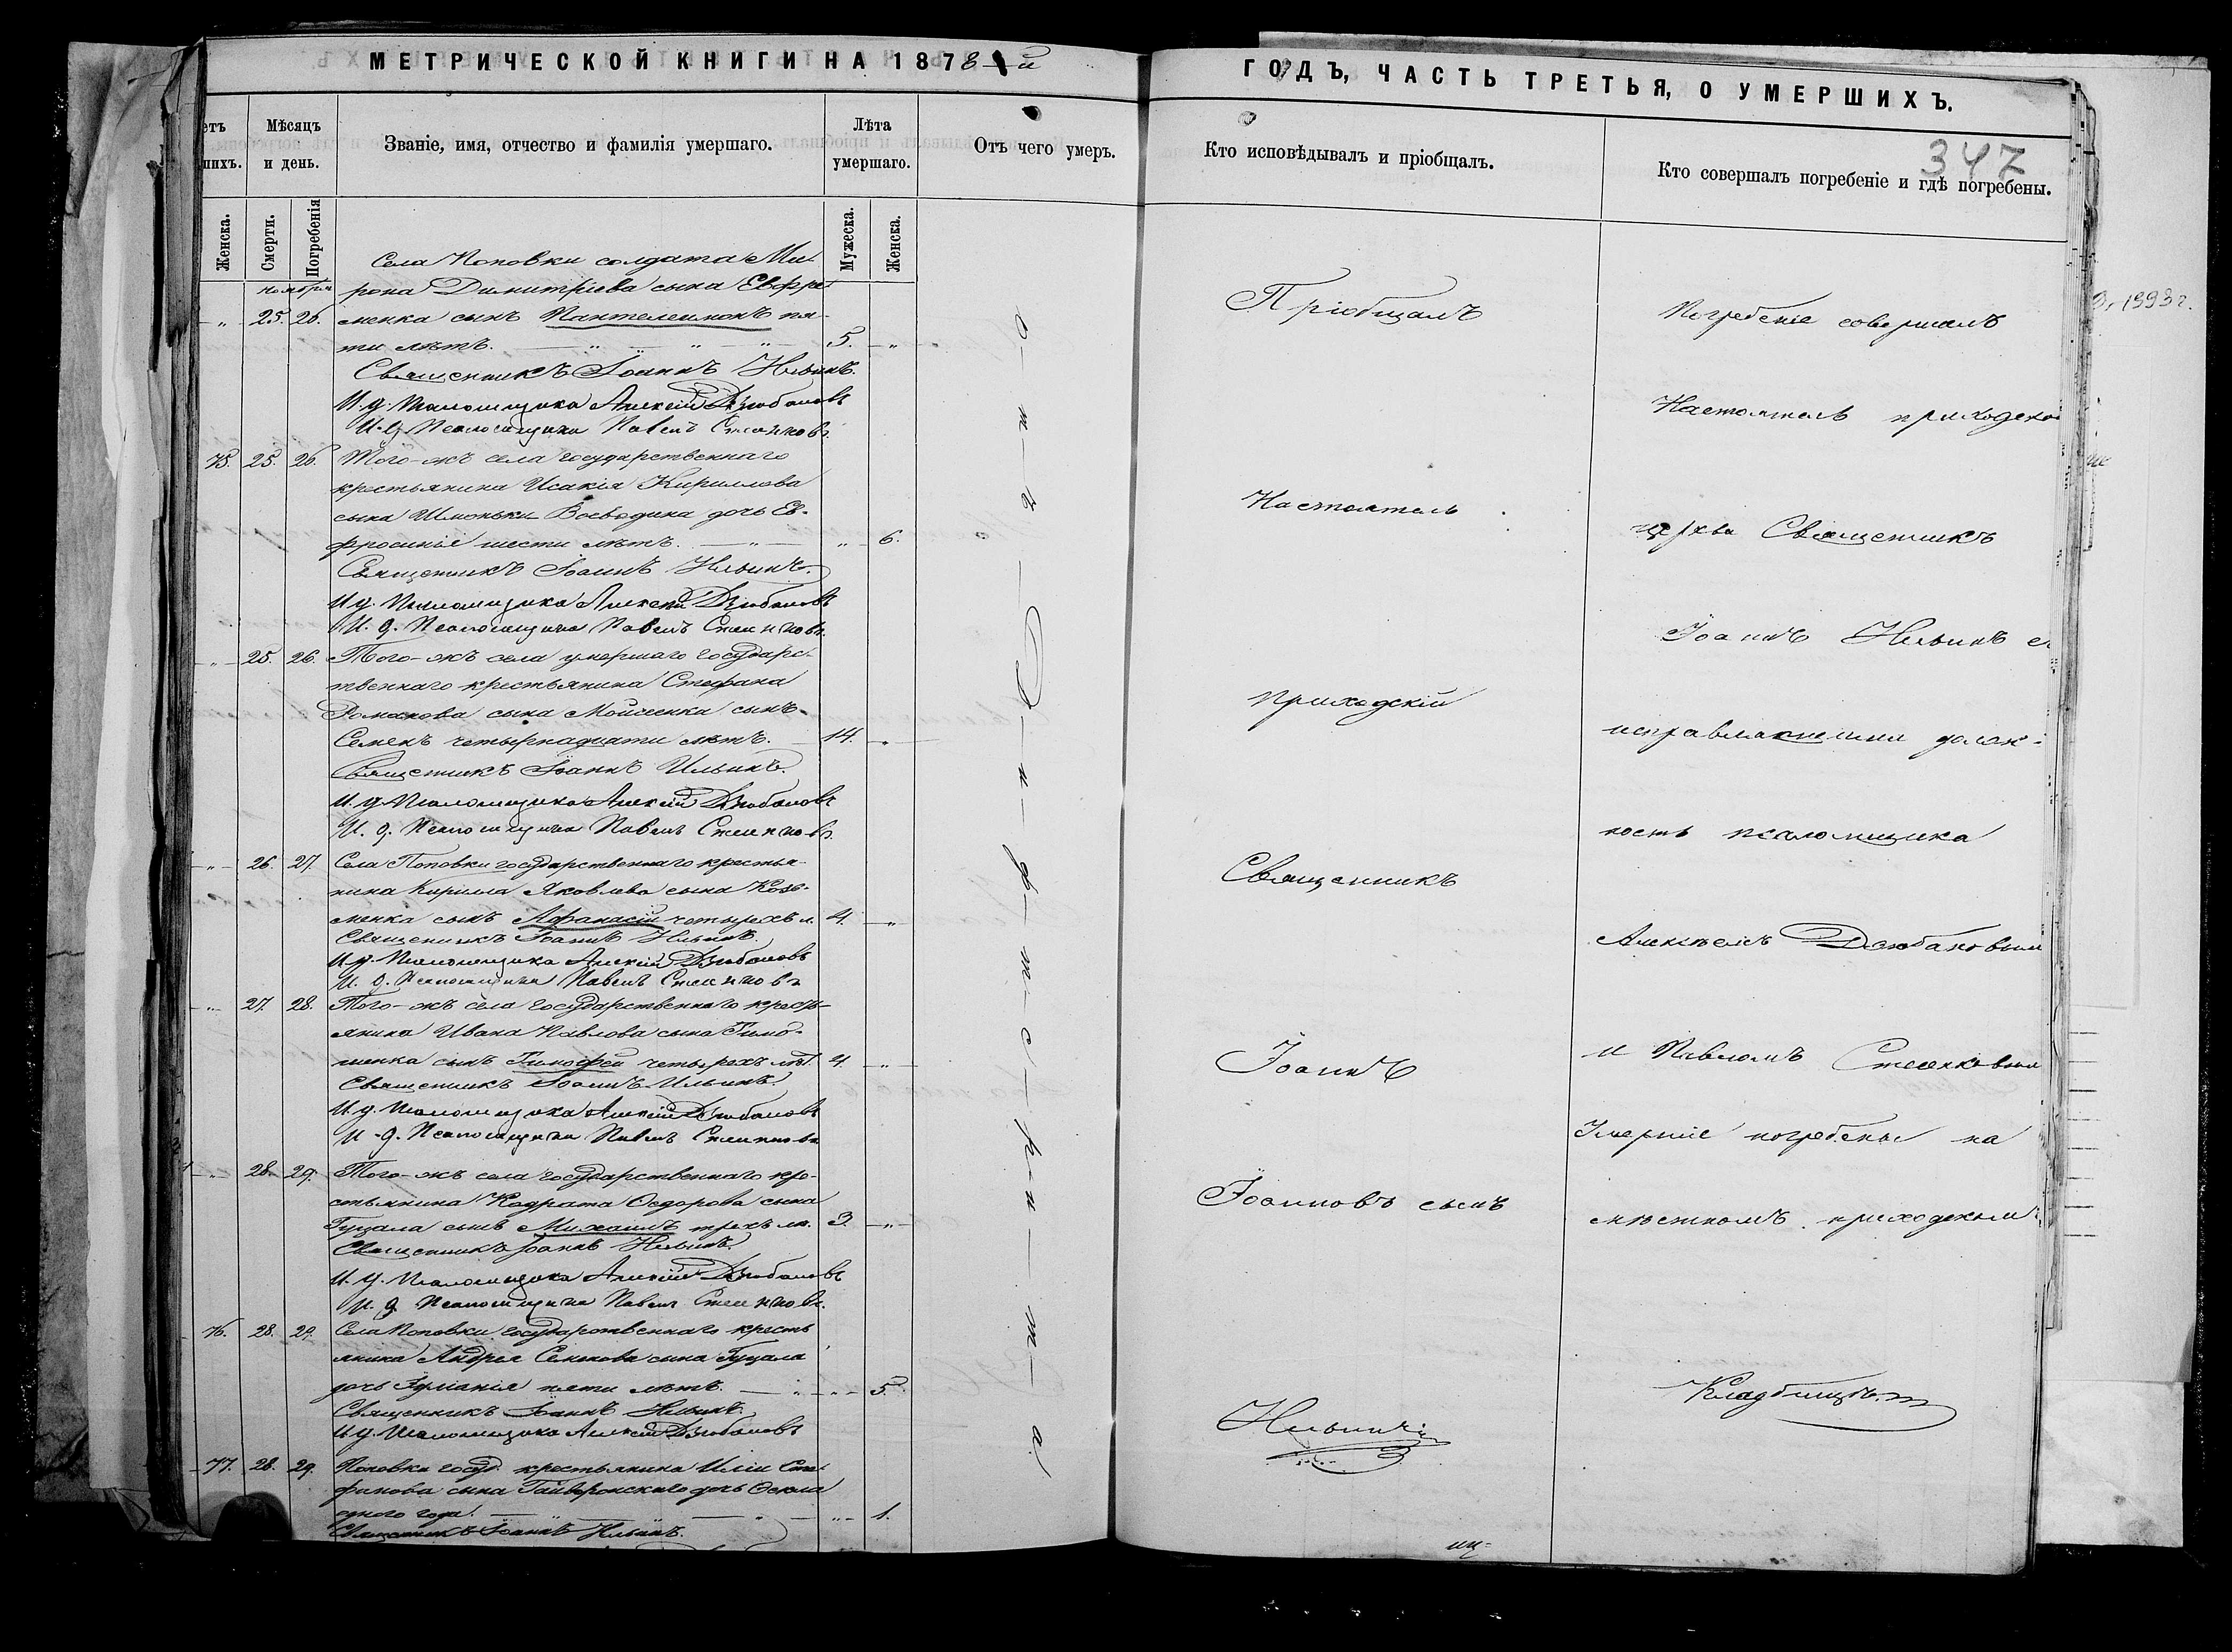 МЕТРИЧЕСКОЙ КНИГИ НА 1878 й
ГОДЪ, ЧАСТЬ ТРЕТЬЯ, О УМЕРШИХЪ.
347
етъ
шихъ.
Мѣсяцъ
и день.
Званіе, имя, отчество и фамилія умершаго.
Лѣта
умершаго.
Отъ чего умеръ.
Кто исповѣдывалъ и пріобщалъ.
Кто совершалъ погребеніе и гдѣ погребены.
Женска.
Смерти.
Погребенія
Мужеска.
Женска.
Села Поповки солдата Ми-
ноября рона Димитріева сына Евфре-
25. 26. менка сынъ Пантелеимонъ пя-
ти лѣтъ. 5.
Священникъ Іоаннъ Ильинъ.
И. д. Псаломщика Алексій Дзюбановъ
И. д. Псаломщика Павелъ
75. 25. 26. Того-жъ села государственнаго
крестьянина Исакія Кириллова
сына Шмоньки Воеводина дочь Ев-
фросинія шести лѣтъ. 6.
Священникъ Іоаннъ Ильинъ.
И. д. Псаломщика Алексій Дзюбановъ
И. д. Псаломщика Павелъ
25. 26. Того-жъ села умершаго государс-
твеннаго крестьянина Стефана
Романова сына Мойсенка сынъ
Семенъ четырнадцати лѣтъ. 14.
Священникъ Іоаннъ Ильинъ.
И. д. Псаломщика Алексій Дзюбановъ
И. д. Псаломщика Павелъ
26. 27. Села Поповки государственнаго крестья-
нина Кирилла Яковлева сына Козь-
менка сынъ Афанасій четырехъ л. 4.
Священникъ Іоаннъ Ильинъ.
И. д. Псаломщика Алексій Дзюбановъ
И. д. Псаломщика Павелъ
27. 28. Того-жъ села государственнаго кресть-
янина Ивана Павлова сына Тимо-
шенка сынъ Тимофей четырехъ лѣт. 4.
Священникъ Іоаннъ Ильинъ.
И. д. Псаломщика Алексій Дзюбановъ
И. д. Псаломщика Павелъ
28. 29. Того-жъ села государственнаго кре-
стьянина Кодрата Ѳедорова сына
Гуцала сынъ Михаилъ трехъ лѣ. 3.
Священникъ Іоаннъ Ильинъ.
И. д. Псаломщика Алексій Дзюбановъ
И. д. Псаломщика Павелъ
76. 28. 29. Села Поповки государственнаго кресть
янина Андрея Семенова сына Гуцала
дочь Іуліанія пяти лѣтъ. 5.
Священникъ Іоаннъ Ильинъ.
И. д. Псаломщика Алексій Дзюбановъ
77. 28. 29. Поповки госуд. крестьянина Иліи Сте-
фанова сына Гайворонскаго дочь Ѳекла
одного года. 1.
Священникъ Іоаннъ Ильинъ.
Пріобщалъ
Настоятель
приходскій
Священникъ
Іоаннъ
Іоанновъ сынъ
Ильинъ
Погребеніе совершалъ
Настоятель приходской
церкви Священникъ
Іоаннъ Ильинъ съ
исправляющими долж-
ность псаломщика
Алексѣемъ Дзюбановым
и Павломъ
Умершіе погребены на
мѣстномъ приходском
Кладбищѣ.